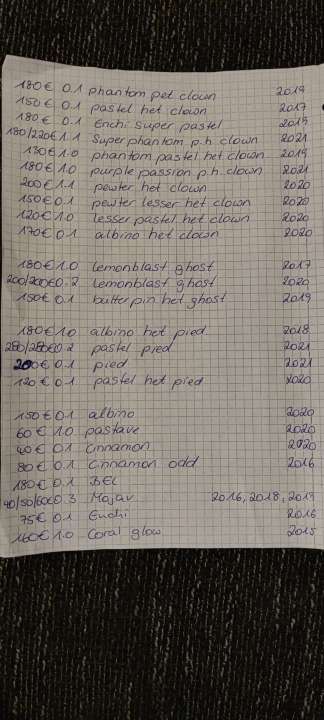 180€ 0.1 phantom pet clown 2019
150€ 0.1 pastel het clown 2017
180€ 0.1 Enchi super pastel 2019
180/220€ 1.1 Superphantom p.h clown 2021
130€ 1.0 phantom pastel het clown 2019
180€ 1.0 purple passion p.h. clown 2021
200€ 1.1 pewter het clown 2020
150€ 0.1 pewter lesser het clown 2020
120€ 1.0 lesser pastel het clown 2020
170€ 0.1 albino het clown 2020
180€ 1.0 lemonblast ghost 2017
200/200€ 0.2 lemonblast ghost 2020
150€ 0.1 butter pin het ghost 2019
180€ 1.0 albino het pied 2018
280/280€ 0.2 pastel pied 2021
200€ 0.1 pied 2021
120€ 0.1 pastel het pied 2020
150€ 0.1 albino 2020
60€ 1.0 pastave 2020
40€ 0.1 Cinnamon 2020
80€ 0.1 Cinnamon odd 2016
180€ 0.1 BEL
40/50/60€ 0.3 Mojav 2016, 2018, 2019
75€ 0.1 Enchi 2016
160€ 1.0 Coral glow 2015